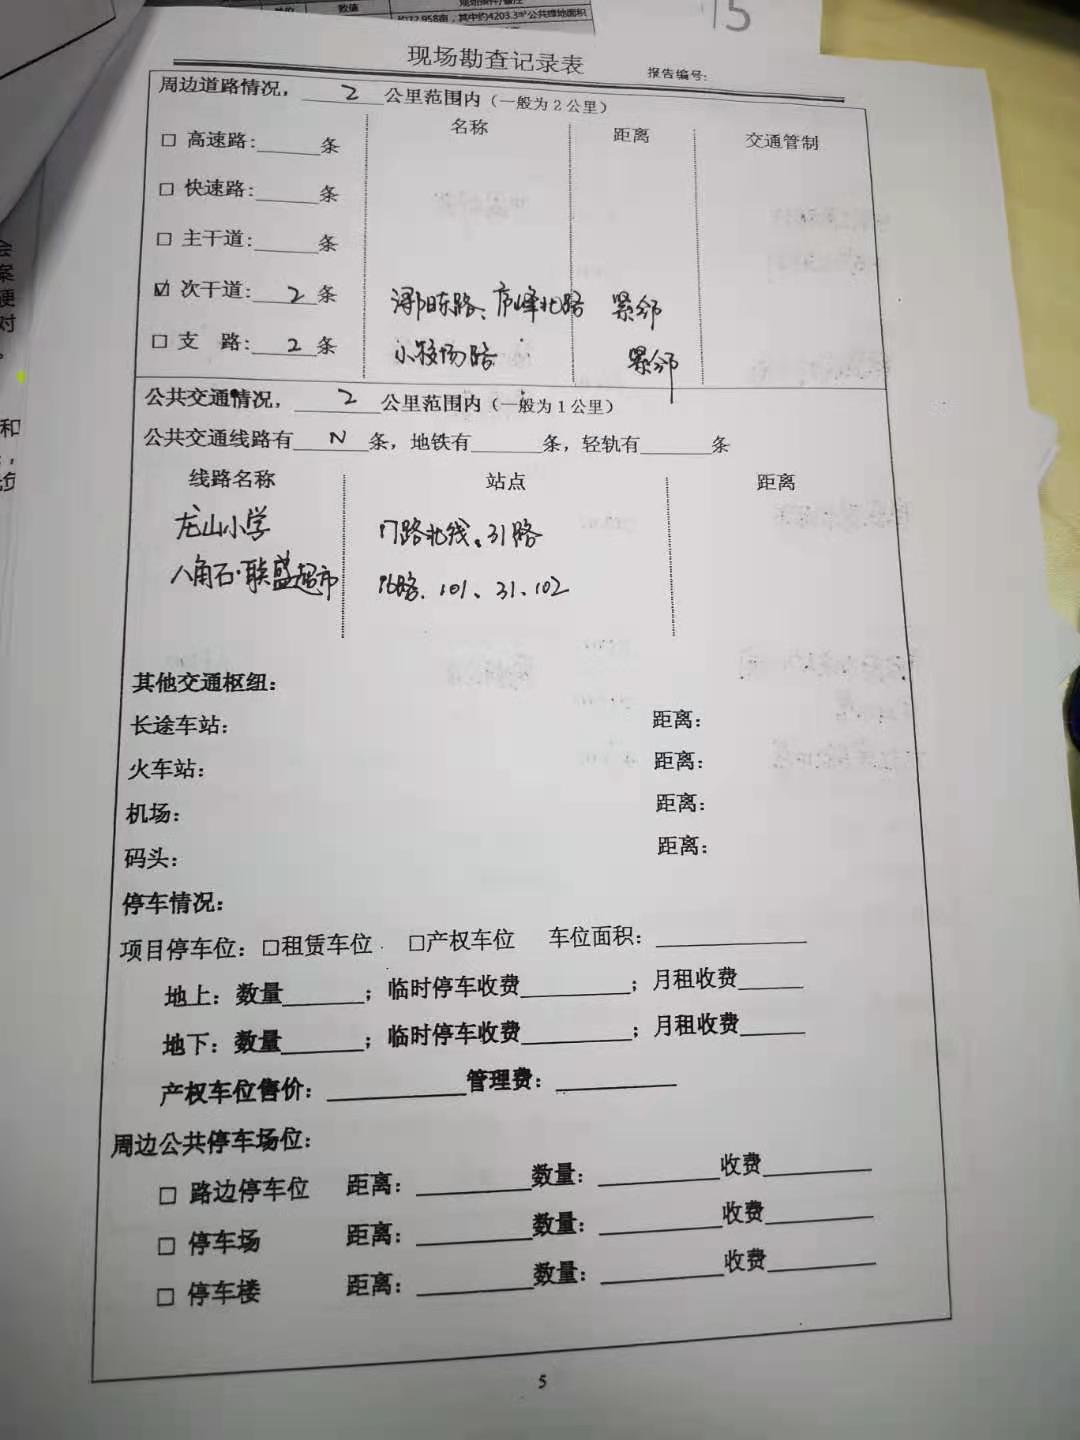 数值
约72.958亩，其中约4203.3㎡公共绿地面积
15
现场勘查记录表
报告编号:
周边道路情况，2公里范围内（一般为2公里）
名称 距离 交通管制
□ 高速路:______条
□ 快速路:______条
□ 主干道:______条
☑ 次干道: 2 条 浔阳东路、庐峰北路 紧邻
□ 支 路: 2 条 小教场路 紧邻
公共交通情况，2公里范围内（一般为1公里）
公共交通线路有 N 条，地铁有______条，轻轨有______条
线路名称 站点 距离
龙山小学 路北线、31路
八角石·联盛超市 16路、101、31、102
其他交通枢纽：
长途车站： 距离：
火车站： 距离：
机场： 距离：
码头： 距离：
停车情况：
项目停车位：□租赁车位 □产权车位 车位面积：______
地上：数量______；临时停车收费______；月租收费______
地下：数量______；临时停车收费______；月租收费______
产权车位售价：______管理费：______
周边公共停车场位：
□ 路边停车位 距离：______数量：______收费______
□ 停车场 距离：______数量：______收费______
□ 停车楼 距离：______数量：______收费______
5